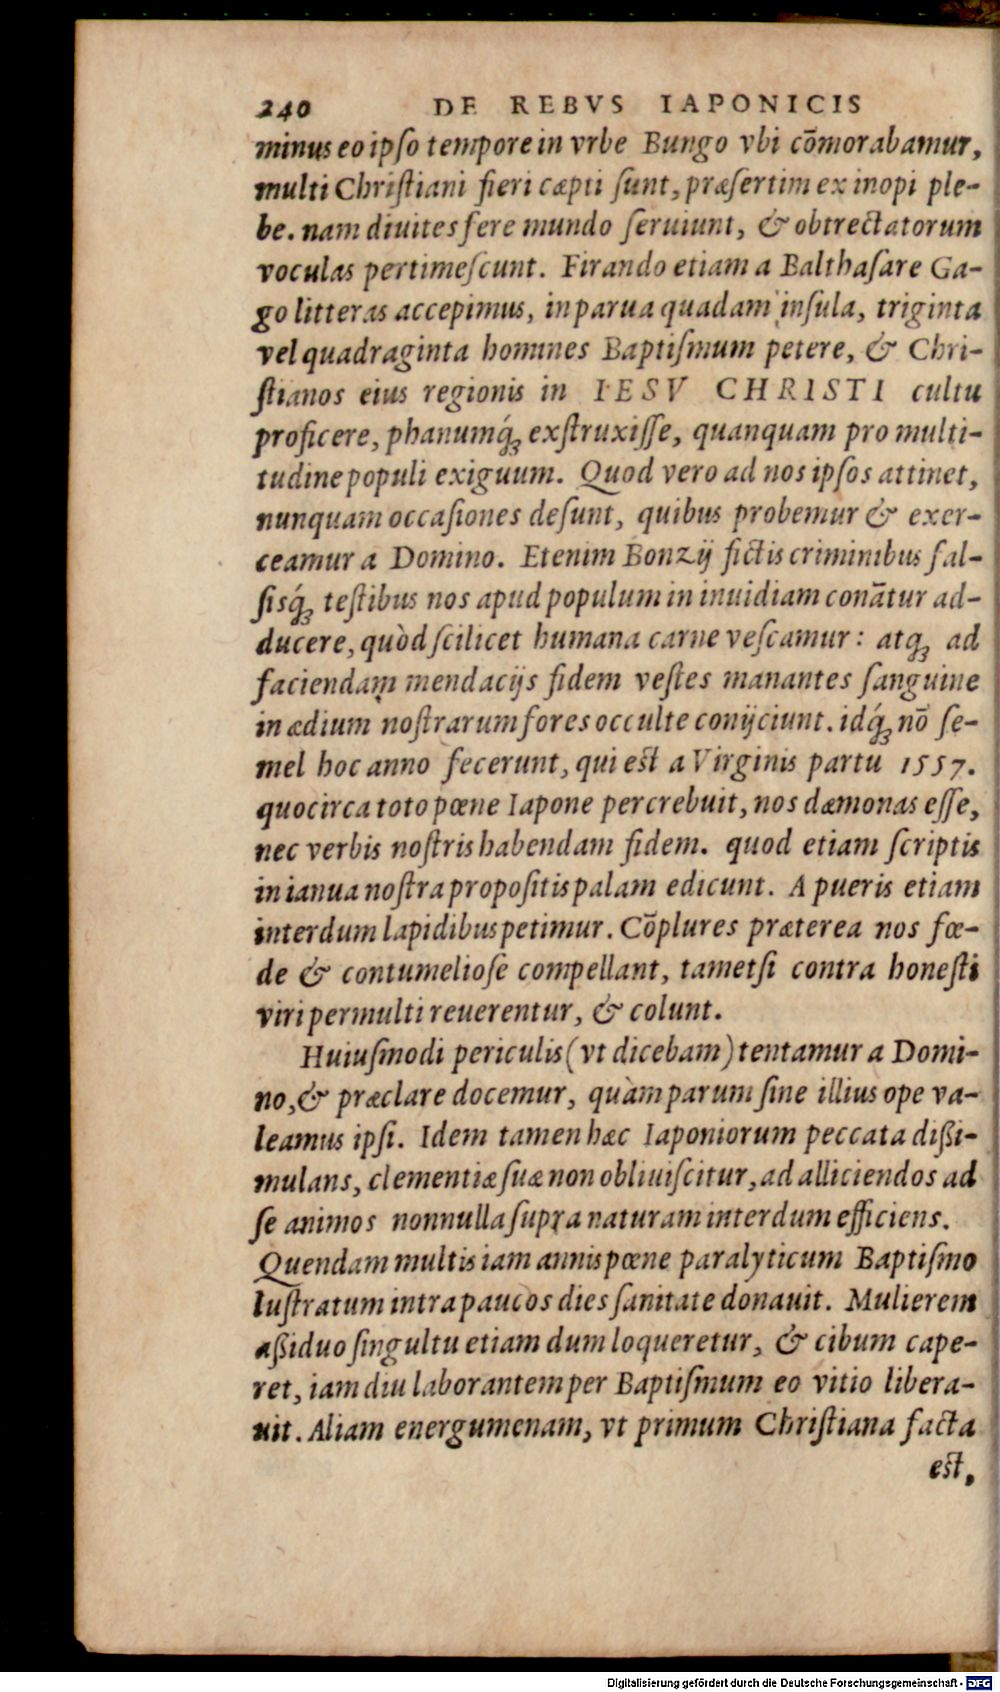 240 DE REBVS IAPONICIS
minus eo ipſo tempore in vrbe Bungo vbi cõmorabamur,
multi Chriſtiani fieri cæpti ſunt, præſertim ex inopi ple-
be. nam diuites fere mundo ſeruiunt, & obtrectatorum
voculas pertimeſcunt. Firando etiam a Balthaſare Ga-
go litteras accepimus, in parua quadam inſula, triginta
vel quadraginta homines Baptiſmum petere, & Chri-
ſtianos eius regionis in IESV CHRISTI cultu
proficere, phanumq́ꝫ exſtruxiſſe, quanquam pro multi-
tudine populi exiguum. Quod vero ad nos ipſos attinet,
nunquam occaſiones deſunt, quibus probemur & exer-
ceamur a Domino. Etenim Bonzij fictis criminibus fal-
ſisq́ꝫ teſtibus nos apud populum in inuidiam conãtur ad-
ducere, quòd ſcilicet humana carne veſcamur: atqꝫ ad
faciendam mendacijs fidem veſtes manantes ſanguine
in ædium noſtrarum fores occulte conijciunt. idq́ꝫ nõ ſe-
mel hoc anno fecerunt, qui eſt a Virginis partu 1557.
quocirca toto pœne Iapone percrebuit, nos dæmonas eſſe,
nec verbis noſtris habendam fidem. quod etiam ſcriptis
in ianua noſtra propoſitis palam edicunt. A pueris etiam
interdum lapidibus petimur. Cõplures præterea nos fœ-
de & contumelioſe compellant, tametſi contra honeſti
viri permulti reuerentur, & colunt.
Huiuſmodi periculis (vt dicebam) tentamur a Domi-
no, & præclare docemur, quàm parum ſine illius ope va-
leamus ipſi. Idem tamen hæc Iaponiorum peccata dißi-
mulans, clementiæ ſuæ non obliuiſcitur, ad alliciendos ad
ſe animos nonnulla ſupra naturam interdum efficiens.
Quendam multis iam annis pœne paralyticum Baptiſmo
luſtratum intra paucos dies ſanitate donauit. Mulierem
aßiduo ſingultu etiam dum loqueretur, & cibum cape-
ret, iam diu laborantem per Baptiſmum eo vitio libera-
uit. Aliam energumenam, vt primum Chriſtiana facta
eſt,
Digitalisierung gefördert durch die Deutsche Forschungsgemeinschaft - DFG